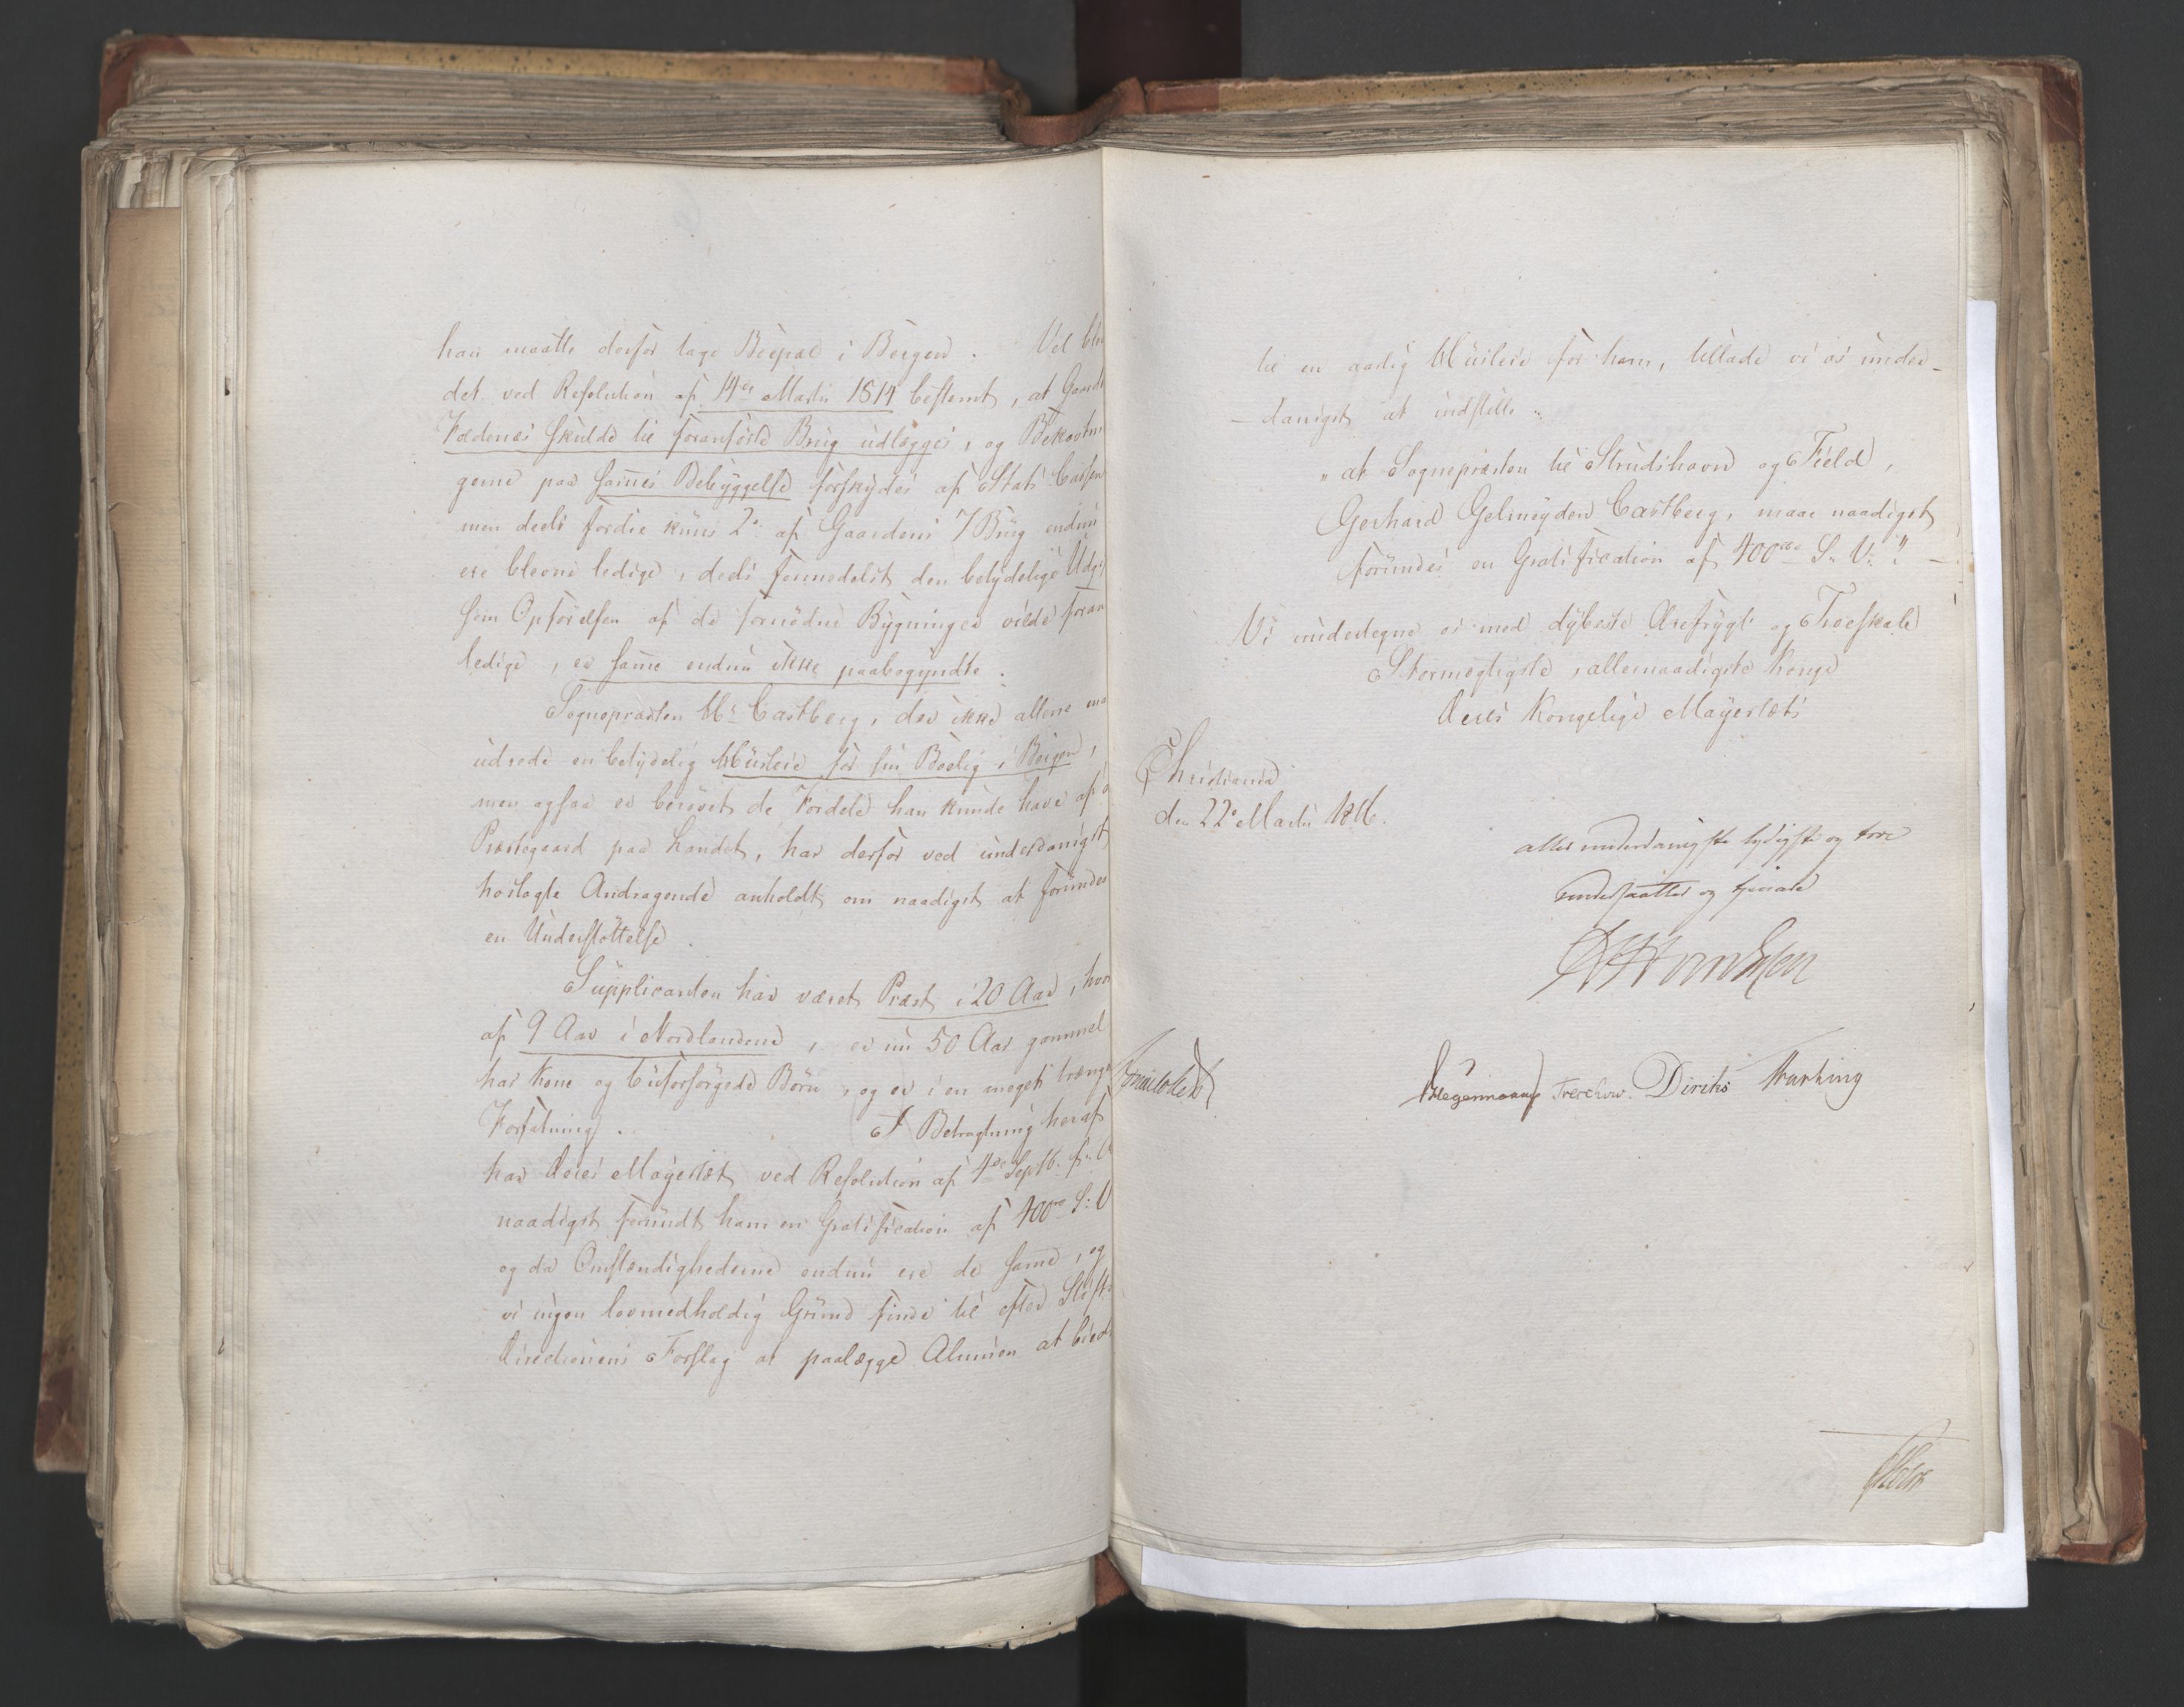 han maatte derfor tage Boepæl i Bergen. Vel blev
det ved Resolution af 14de Martii 1814 bestemt, at Gaarden
skulde til foranførte Brug udlægges, og Bekostnin
gerne paa sammes Bebyggelse forskydes af Stats Cassen
men deels fordie kuns 2de af Gaardens 7 Brug endnu
ere blevne ledige, deels formedelst den betydelige Udg
som Opførelsen af de fornødne Bygninger vilde foran
ledige, er samme endnu ikke paabegyndte.
Sognepræsten Hr Castberg, der ikke allene maa
udrede en betydelig Huusleie for sin Boelig i Bergen,
men ogsaa er berøvet de Fordele han kunde have af
Præstegaard paa Landet, har derfor ved underdanigst
hoslagte Andragende anholdt om naadigst at forundes
en Understøttelse.
Supplicanten har været Præst i 20 Aar, hvor
af 9 Aar i Nordlandene, er nu 50 Aar gammel
har Kone og 6 uforsørgede Børn, og er i en meget trænge
Forfatning. I Betragtning heraf
har Deres Mayestæt ved Resolution af 4de Septb. f. A
naadigst forundt ham en Gratification af 400 rd S. V
og da Omstændighederne endnu ere de samme, og
vi ingen lovmedholdig Grund finde til efter Stifts
Directionens Forslag at paalægge Almuen at bidra
til en aarlig Huusleie for ham, tillade vi os under-
- danigst at indstille:
"at Sognepræsten til Strudshavn og Field,
Gerhard Gelmeyden Castberg, maae naadigst
forundes en Gratification af 400 rd S. V." -
Vi undertegne os med dybeste Ærefrygt og Troeskab
Stormægtigste, allernaadigste Konge
Deres Kongelige Mayestæts
Christiania
den 22de Martii 1816.
aller underdanigste lydigste og troe
undersaatter og tjenere
Hegermann Treschow. Diriks